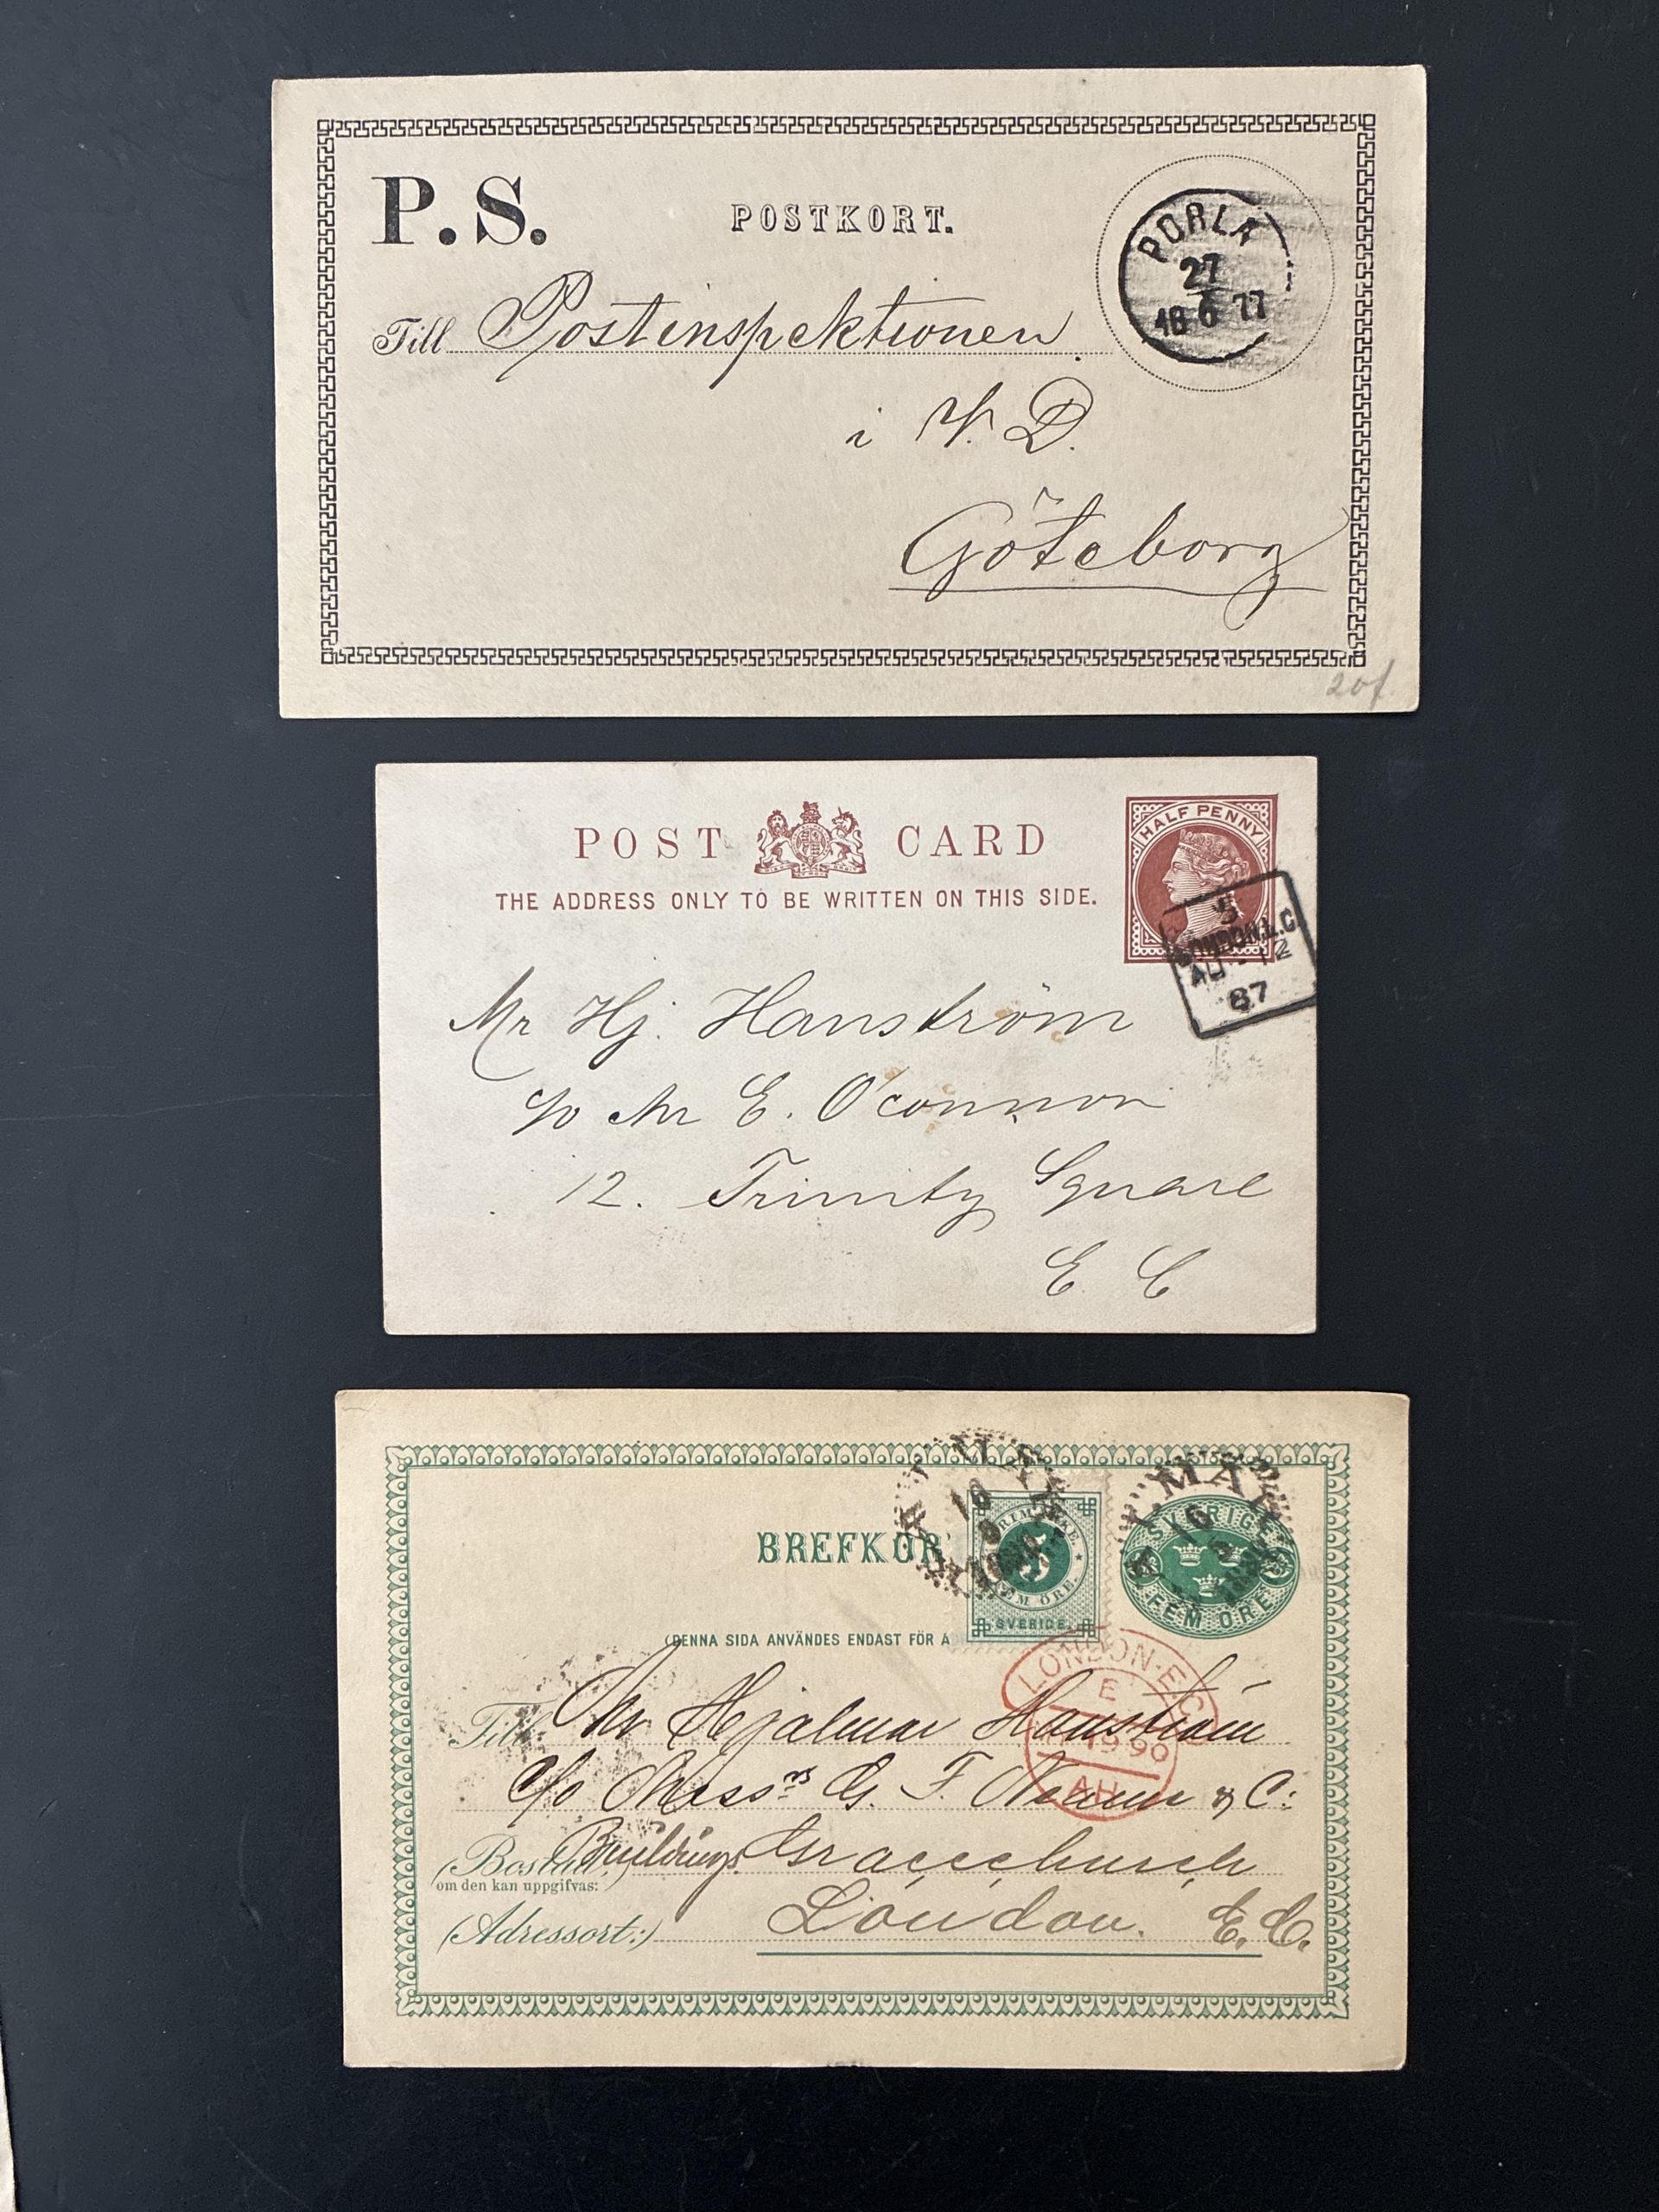 P.S.
POSTKORT.
PORLA
27
18 6 77
Till Postinspektionen
i V. D.
Göteborg
20/
POST CARD
THE ADDRESS ONLY TO BE WRITTEN ON THIS SIDE.
HALF PENNY
5
LONDON.E.C
AU 12
87
Mr Hj. Hanström
c/o Mr E. O'connor
12. Trinity Square
E C
BREFKOR
FRIMÄRKE.
5
FEM ÖRE.
SVERIGE.
SVERIGE
FEM ÖRE
KALMAR
16
9
(DENNA SIDA ANVÄNDES ENDAST FÖR A
LONDON.E.C
E
19 90
AH
Till Mr Hjalmar Hanström
c/o Messrs G. F. & C:
(Bostad,
om den kan uppgifvas:)
Buildings Gracechurch
(Adressort:) London. E.C.